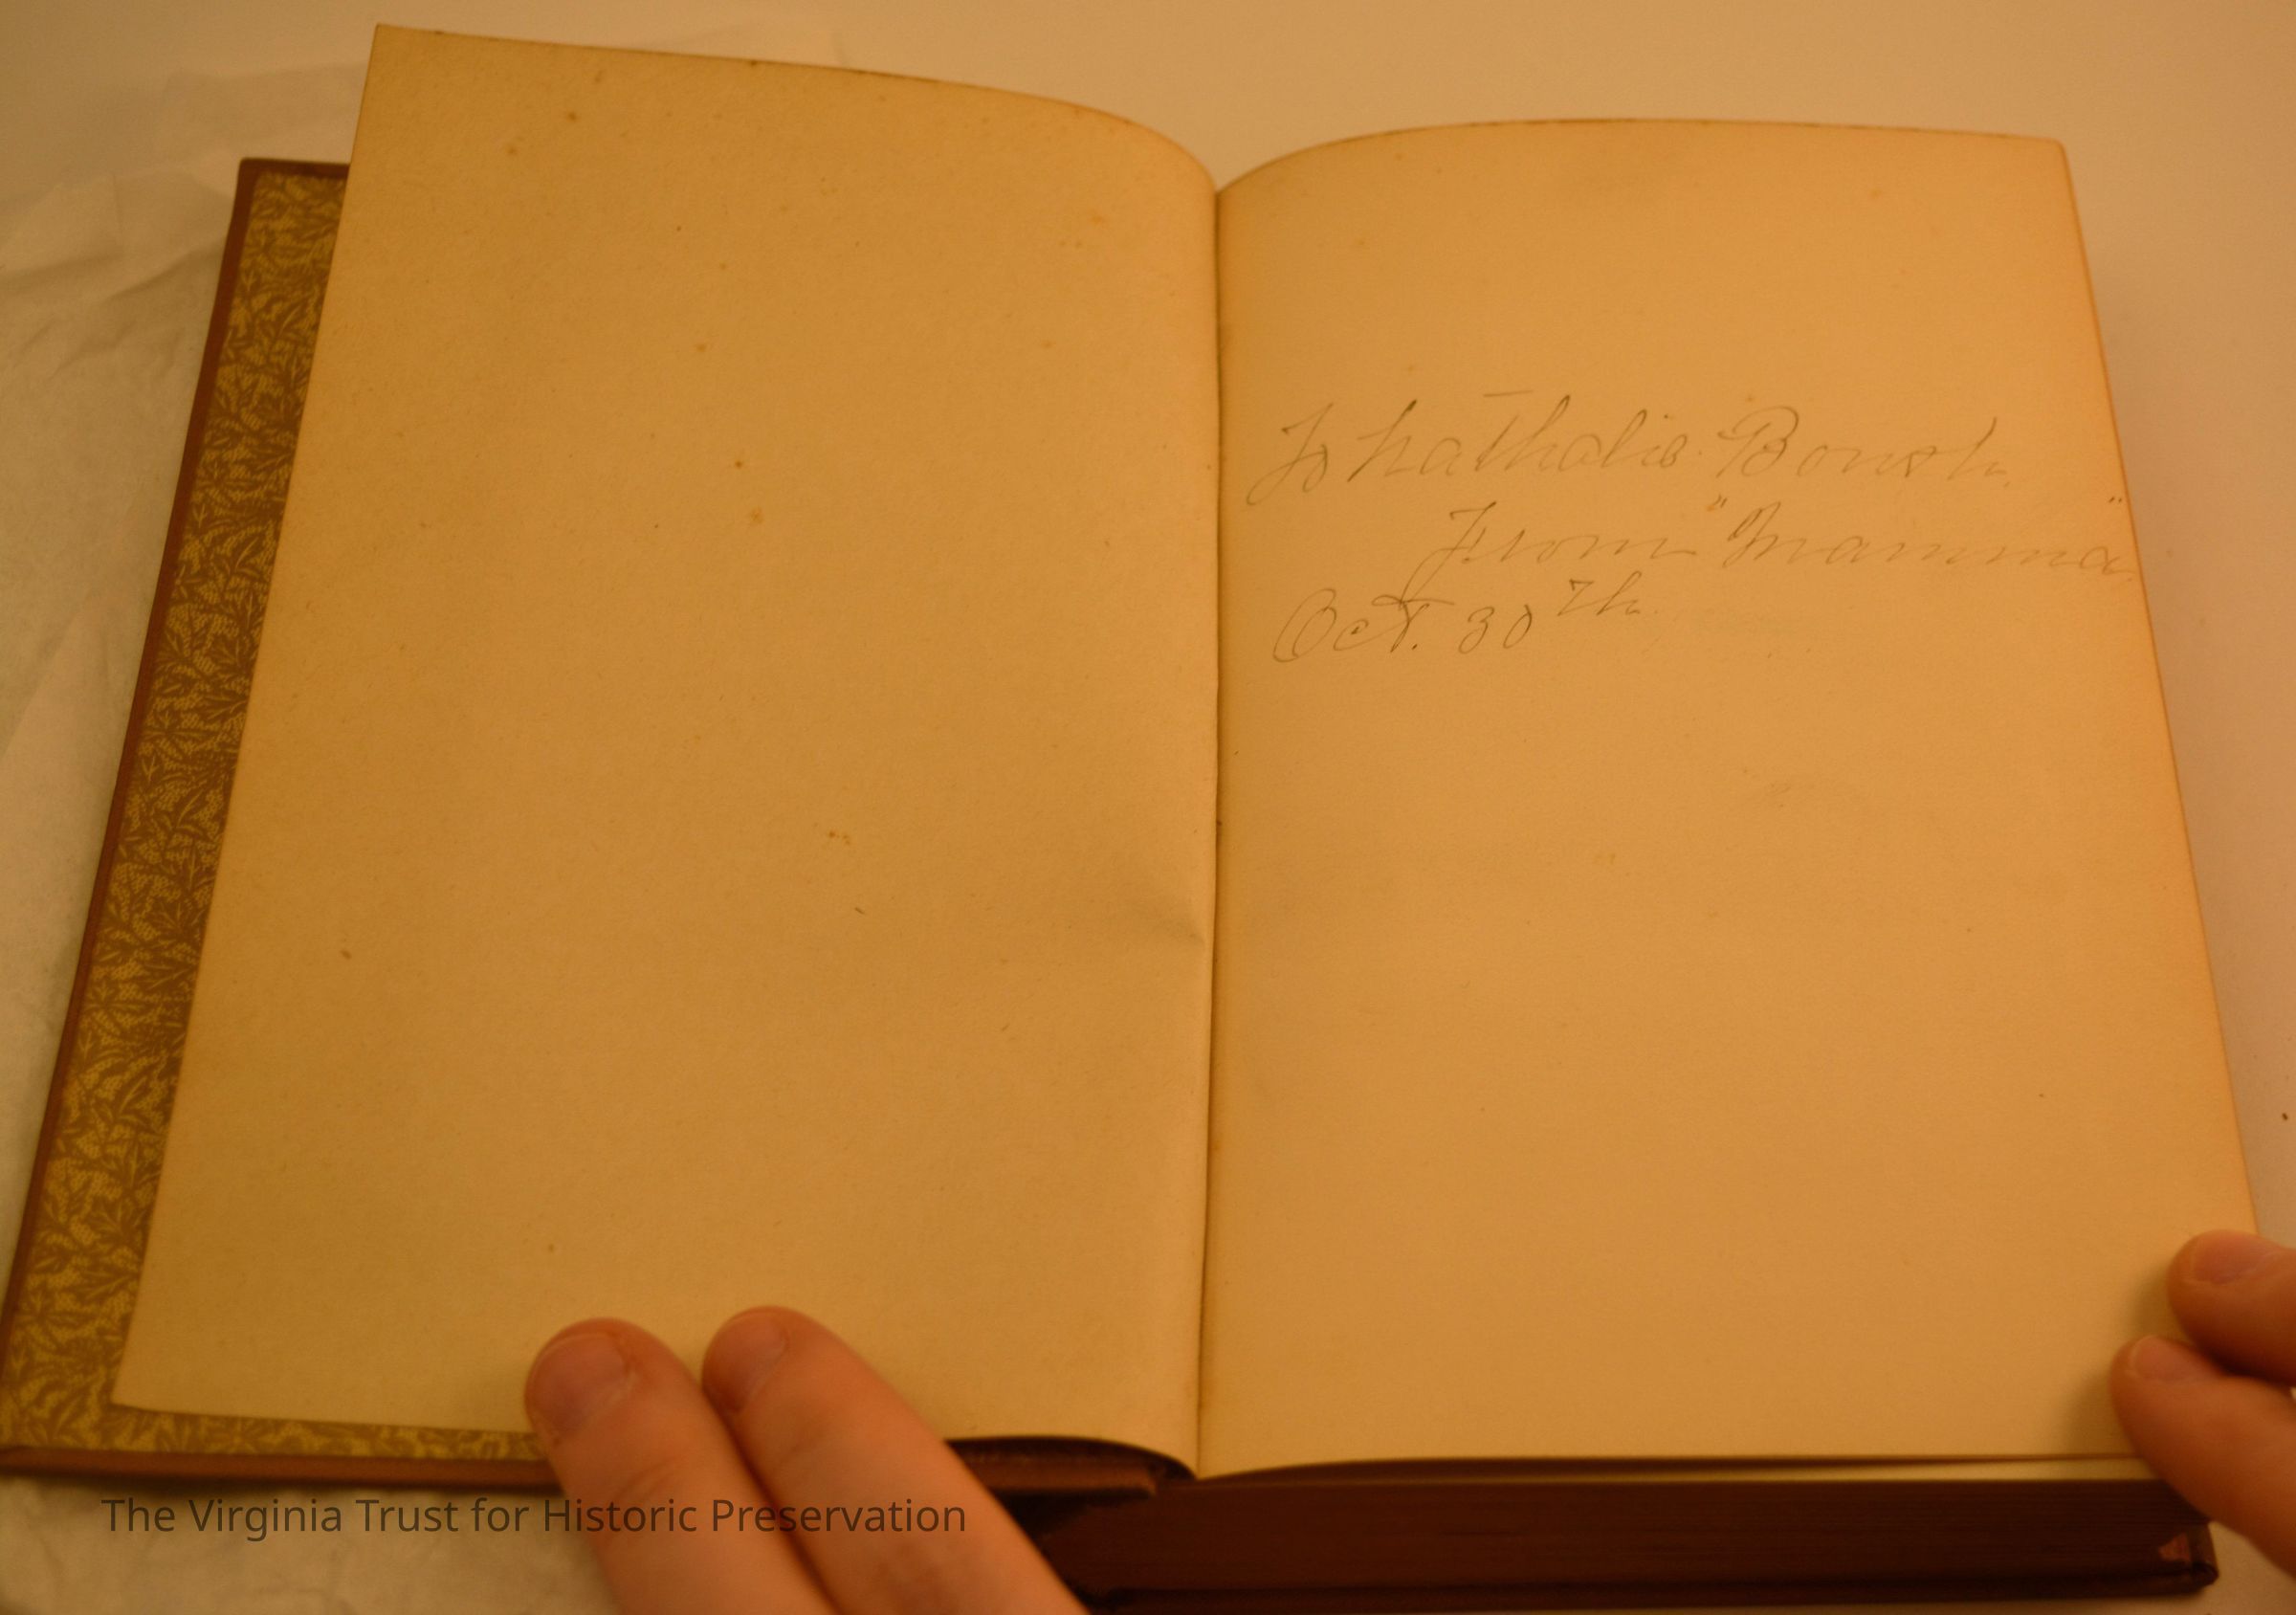 To Nathalie Boush
From "Mamma"
Oct. 30th
The Virginia Trust for Historic Preservation